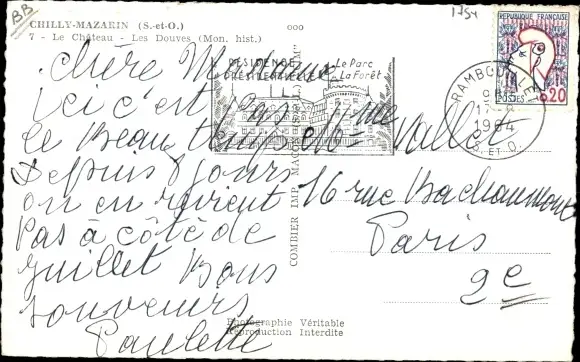 BB
CHILLY-MAZARIN (S.-et-O.)
7 - Le Château - Les Douves (Mon. hist.)
ooo
1754
REPUBLIQUE FRANÇAISE
POSTES 0,20
RÉSIDENCE PRÉSIDENTIELLE
Le Parc
La Forêt
RAMBOUILLET
1964
S. ET O.
chère Madame
ici c'est Pas
le Beau temps
Depuis 8 jours
on en revient
Pas à côté de
juillet Bons
souvenirs
Paulette
Mme
Vallet
16 rue Bachaumont
Paris
2e
COMBIER IMP. MACON
Photographie Véritable
Reproduction Interdite